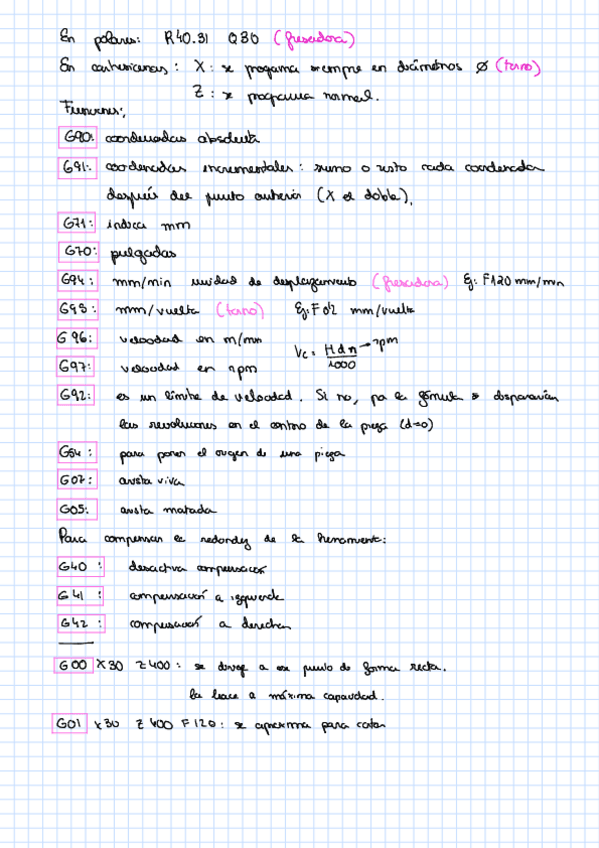 En polares: R40.31 Q80 (fresadora)
En cartesianas: X: se programa siempre en diámetros Ø (torno)
Z: se programa normal.
Funciones:
G90: coordenadas absoluta
G91: coordenadas incrementales: sumo o resto cada coordenada
después del punto anterior (X el doble).
G71: indica mm
G70: pulgadas
G94: mm/min unidad de desplazamiento (fresadora) Ej: F120 mm/min
G95: mm/vuelta (torno) Ej: F0'2 mm/vuelta
G96: velocidad en m/min
Vc = π d n → rpm
1000
G97: velocidad en rpm
G92: es un límite de velocidad. Si no, por la fórmula se dispararían
las revoluciones en el centro de la pieza (d=0)
G54: para poner el origen de una pieza
G07: arista viva
G05: arista matada
Para compensar la redondez de la herramienta:
G40: desactiva compensación
G41: compensación a izquierda
G42: compensación a derechas
G00 X30 Z400: se dirige a ese punto de forma recta.
lo hace a máxima capacidad.
G01 X30 Z400 F120: se aproxima para cortar